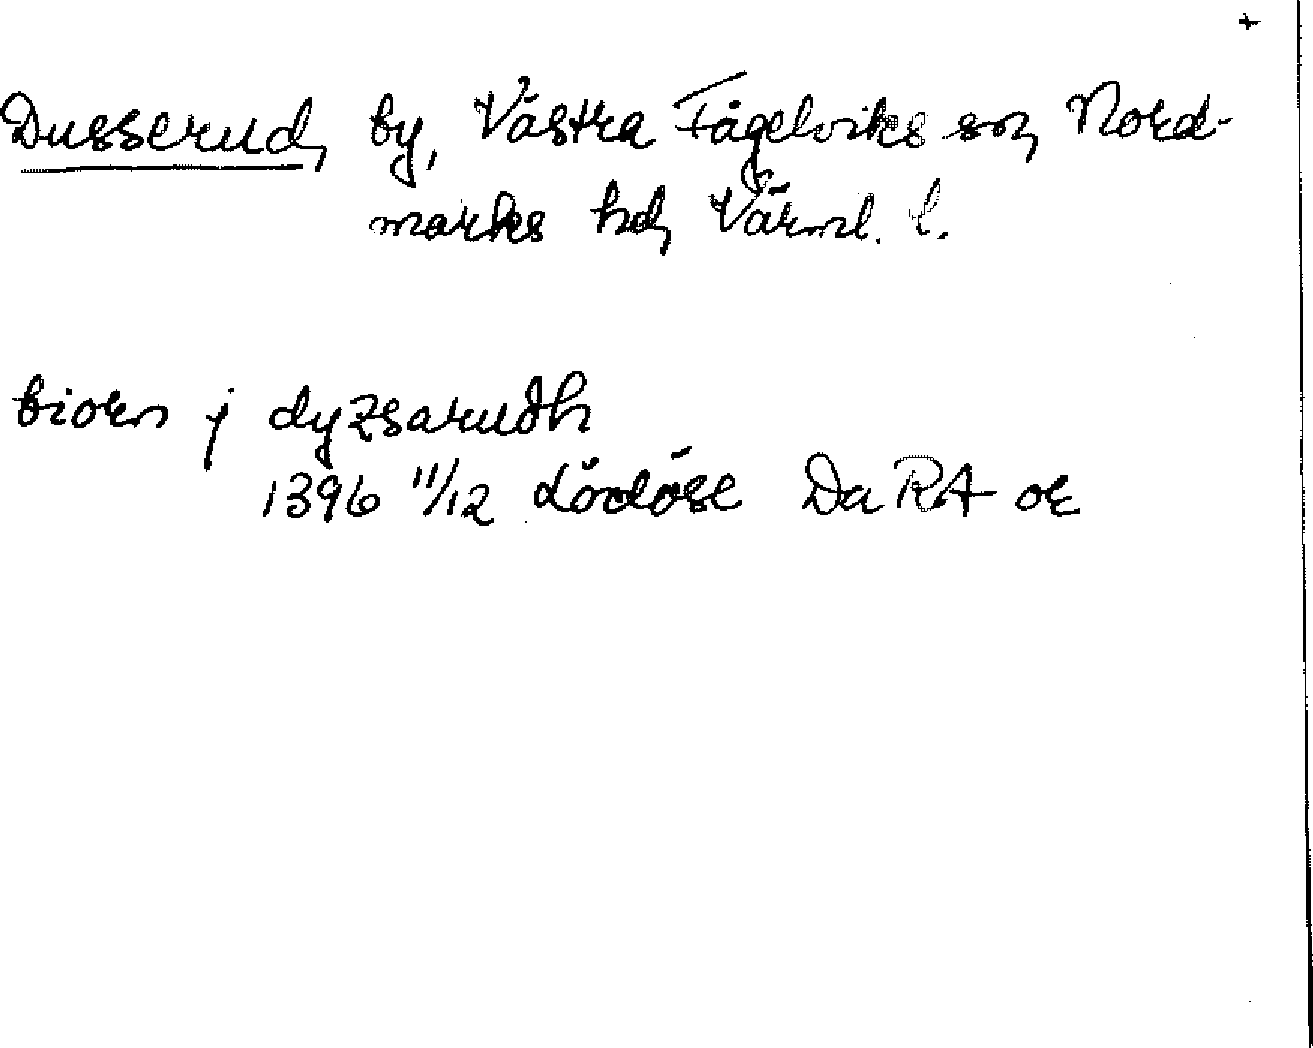 +
Dusserud, by, Västra Fågelviks sn, Nord-
marks hd, Värml. l.
biorn j dyzsarudh
1396 11/12 Lödöse DaRA or